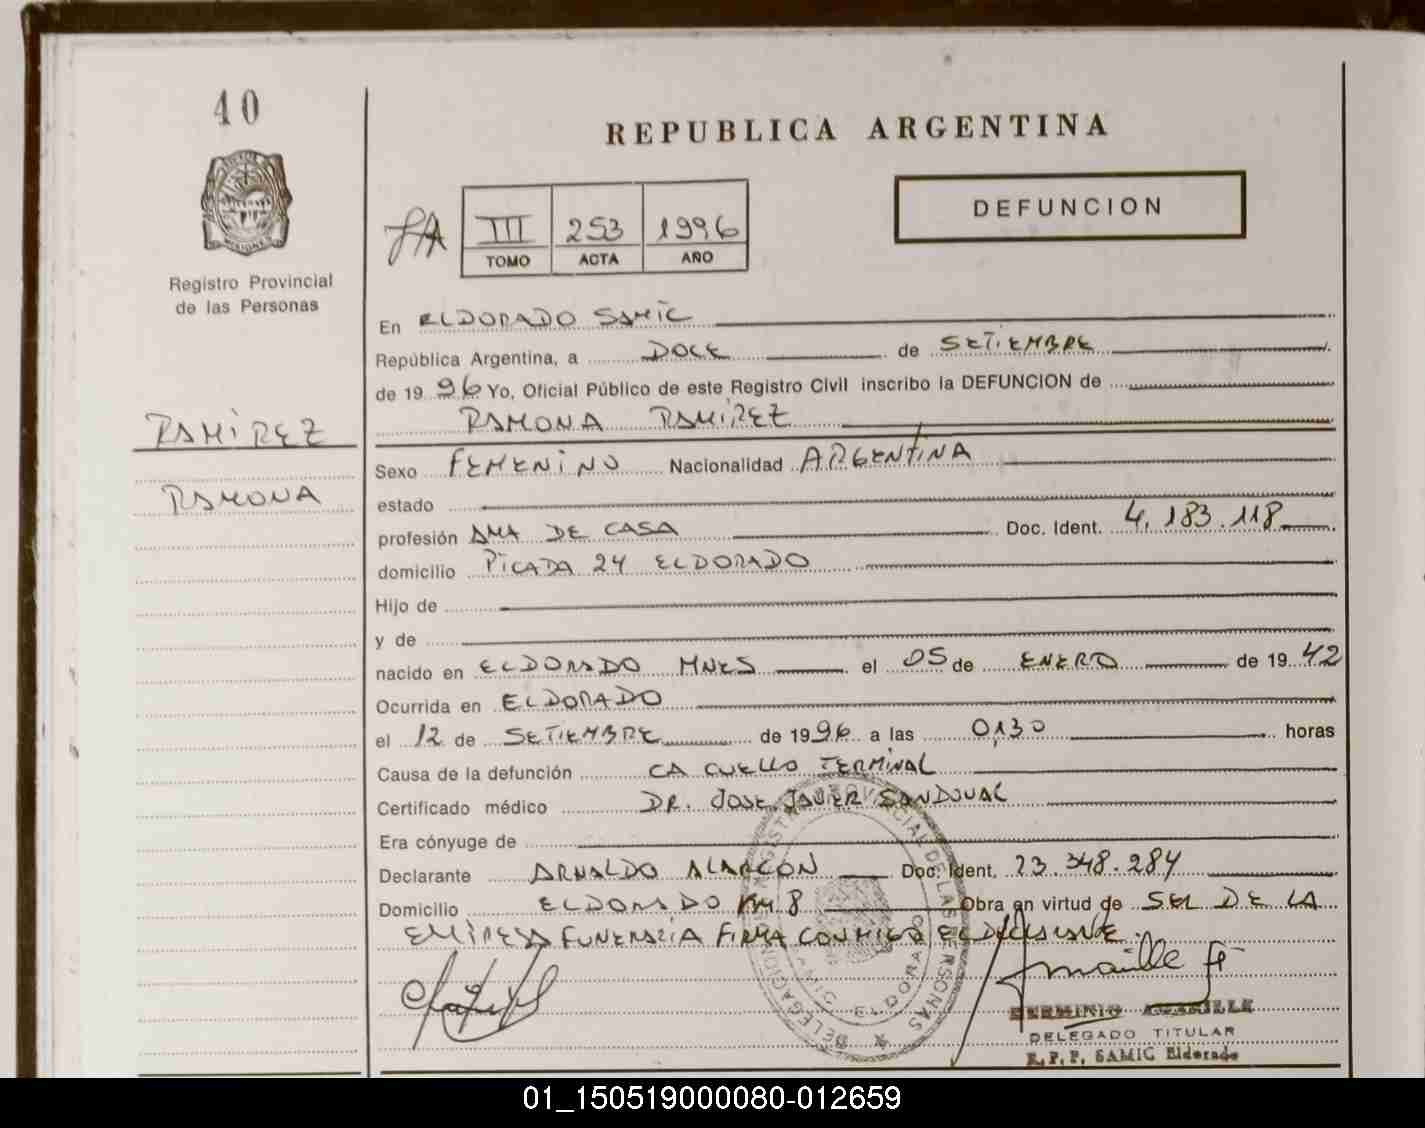 40
REPUBLICA ARGENTINA
DEFUNCION
III 253 1996
TOMO ACTA AÑO
Registro Provincial
de las Personas
En ELDORADO SAMIC
República Argentina, a DOCE de SETIEMBRE
de 1996 Yo, Oficial Público de este Registro Civil inscribo la DEFUNCION de
RAMONA RAMIREZ
RAMIREZ
RAMONA
Sexo FEMENINO Nacionalidad ARGENTINA
estado
profesión AMA DE CASA Doc. Ident. 4.183.118
domicilio PICADA 24 ELDORADO
Hijo de
y de
nacido en ELDORADO MNES el 05 de ENERO de 1942
Ocurrida en ELDORADO
el 12 de SETIEMBRE de 1996 a las 0,30 horas
Causa de la defunción CA CUELLO TERMINAL
Certificado médico DR. JOSE JAVIER SANDOVAL
Era cónyuge de
Declarante ARNALDO ALARCON Doc. Ident. 23.348.284
Domicilio ELDORADO KM 8 Obra en virtud de SER DE LA
EMPRESA FUNERARIA FIRMA CONMIGO EL DECLARANTE.
DELEGACION REGISTRO PROVINCIAL DE LAS PERSONAS
ELDORADO
HERMINIO
DELEGADO TITULAR
R.P.P. SAMIC Eldorado
01_150519000080-012659